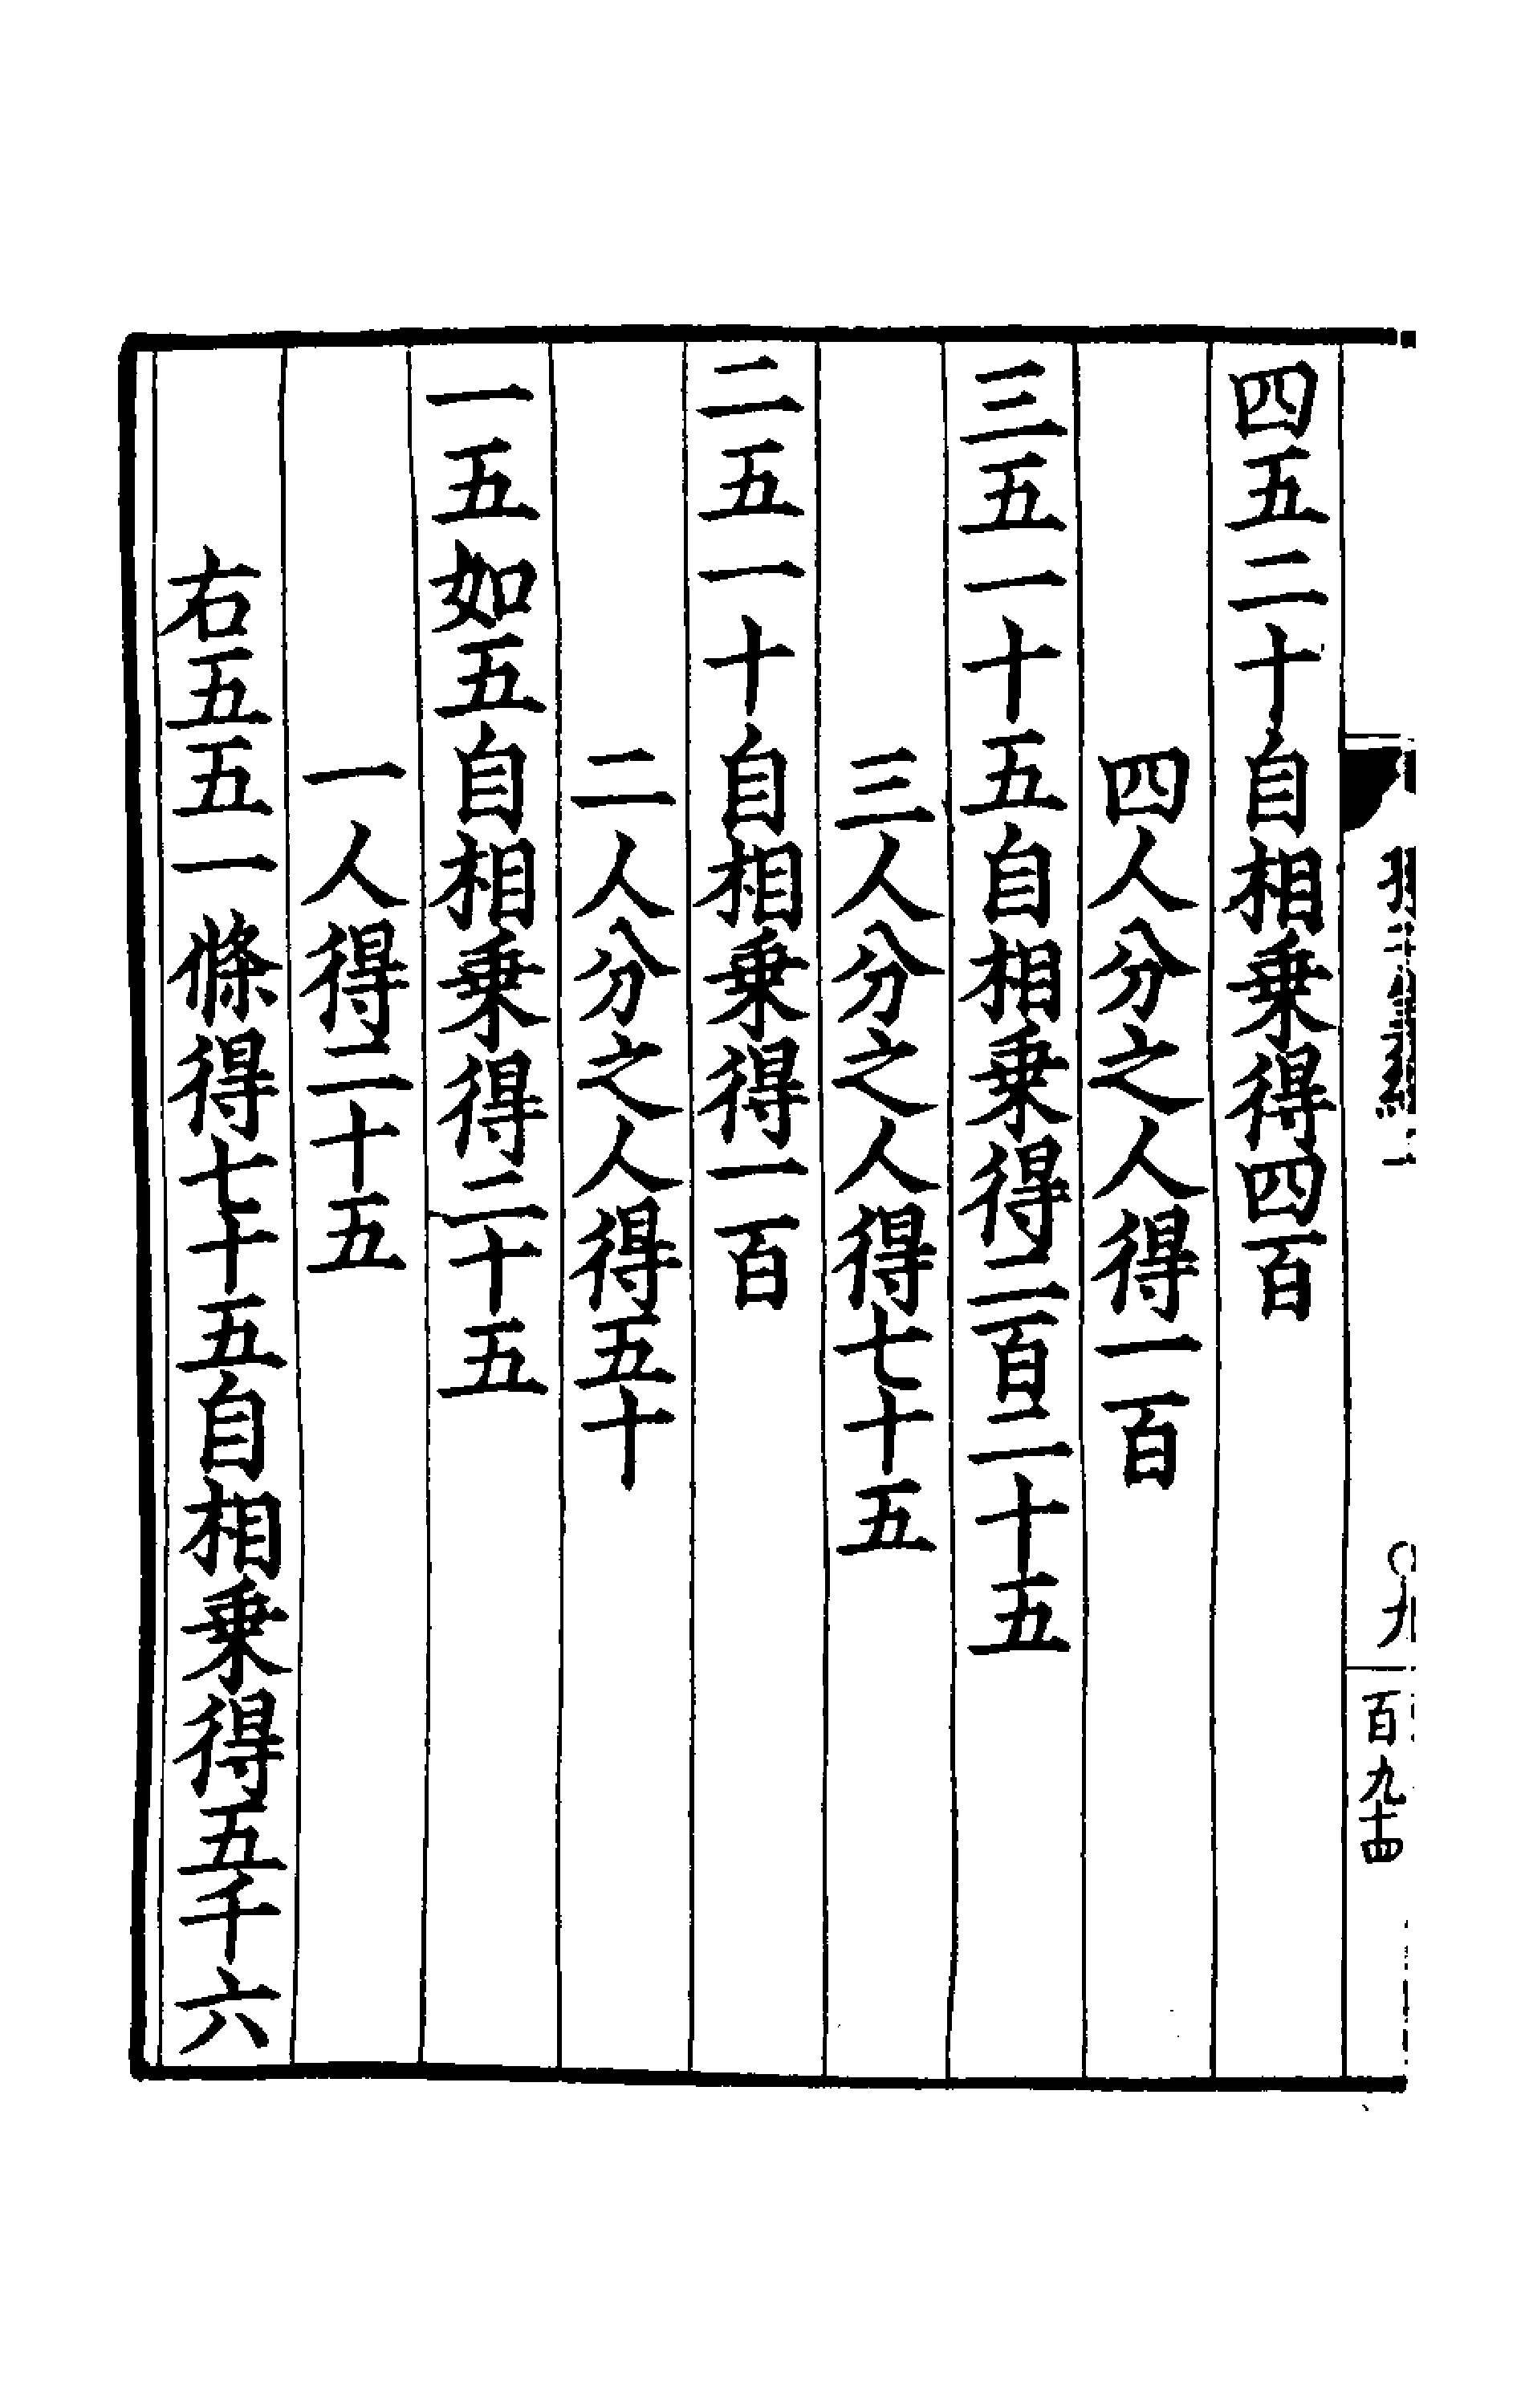 四五二十自相乗得四百
四人分之人得一百
三五一十五自相乗得二百二十五
三人分之人得七十五
二五一十自相乗得一百
二人分之人得五十
一五如五自相乗得二十五
一人得二十五
右五五一條得七十五自相乗得五千六
百九十四